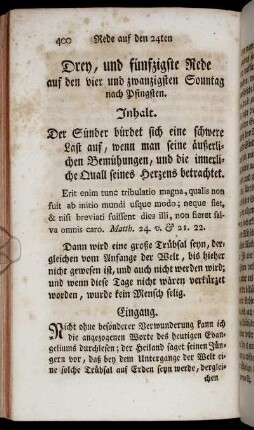 400 Rede auf den 24ten
Drey, und fünfzigste Rede
auf den vier und zwanzigsten Sonntag
nach Pfingsten.
Inhalt.
Der Sünder bürdet sich eine schwere
Last auf, wenn man seine äußerli-
chen Bemühungen, und die innerli-
che Quall seines Herzens betrachtet.
Erit enim tunc tribulatio magna, qualis non
fuit ab initio mundi usque modo; neque fiet,
& nisi breviati fuissent dies illi, non fieret sal-
va omnis caro. Matth. 24. v. & 21. 22.
Dann wird eine große Trübsal seyn, der-
gleichen vom Anfange der Welt, bis hieher
nicht gewesen ist, und auch nicht werden wird;
und wenn diese Tage nicht wären verkürzet
worden, wurde kein Mensch selig.
Eingang.
Nicht ohne besonderer Verwunderung kann ich
die angezogenen Worte des heutigen Evan-
geliums durchlesen; der Heiland saget seinen Jün-
gern vor, daß bey dem Untergange der Welt ei-
ne solche Trübsal auf Erden seyn werde, derglei-
chen